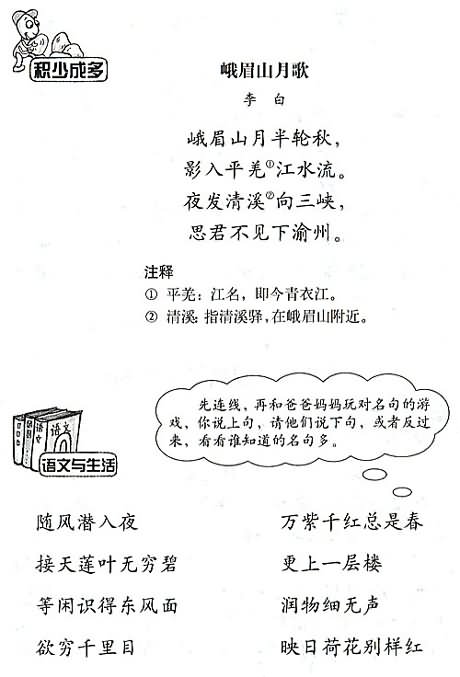 积少成多
峨眉山月歌
李 白
峨眉山月半轮秋，
影入平羌①江水流。
夜发清溪②向三峡，
思君不见下渝州。
注释
① 平羌：江名，即今青衣江。
② 清溪：指清溪驿，在峨眉山附近。
先连线，再和爸爸妈妈玩对名句的游
戏，你说上句，请他们说下句，或者反过
来，看看谁知道的名句多。
语文
语文
语文与生活
随风潜入夜 万紫千红总是春
接天莲叶无穷碧 更上一层楼
等闲识得东风面 润物细无声
欲穷千里目 映日荷花别样红